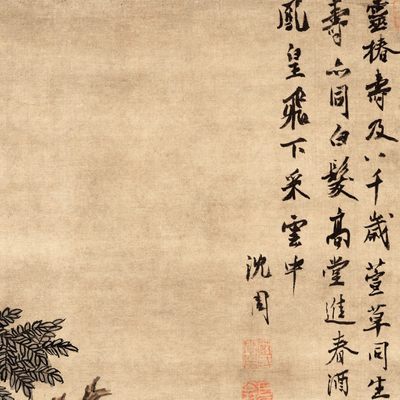 靈椿壽及八千歲萱草同生
壽亦同白髮高堂進春酒
鳳皇飛下采雲中
沈周